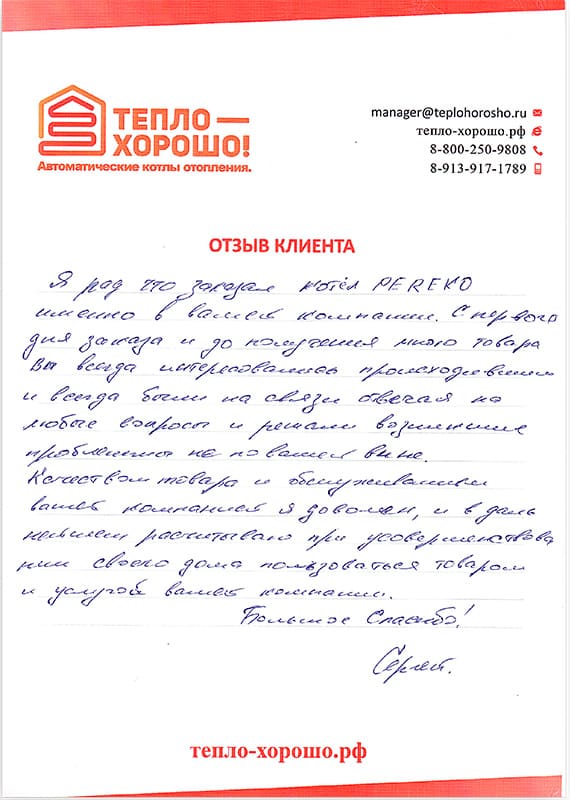 ТЕПЛО —
ХОРОШО!
Автоматические котлы отопления.
manager@teplohorosho.ru
тепло-хорошо.рф
8-800-250-9808
8-913-917-1789
ОТЗЫВ КЛИЕНТА
Я рад что заказал котёл PEREKO
именно в вашей компании. С первого
дня заказа и до получения мною товара
Вы всегда интересовались происходившим
и всегда были на связи отвечая на
любые вопросы и решали возникшие
проблеммы не по вашей вине.
Качеством товара и обслуживанием
вашей компанией я доволен, и в даль
нейшем расчитываю при усовершенствова
нии своего дома пользоваться товаром
и услугой вашей компании.
Большое Спасибо!
Сергей.
тепло-хорошо.рф